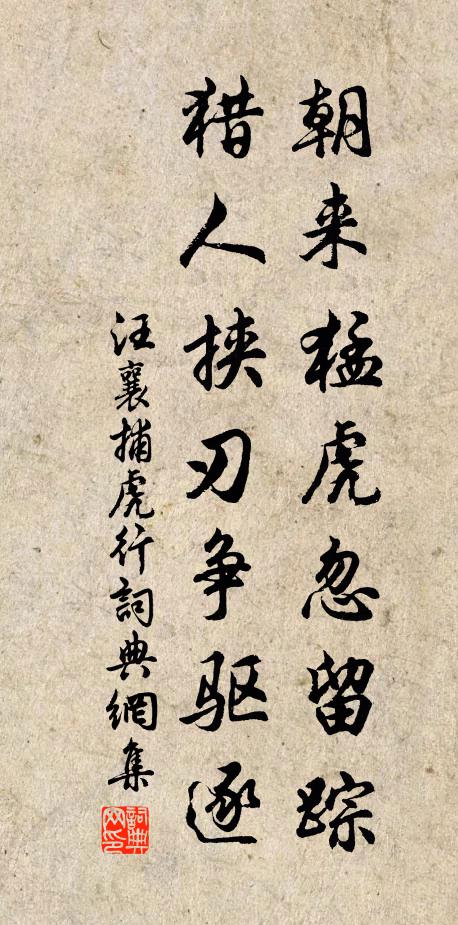 朝来猛虎忽留踪
猎人挟刃争驱逐
汪襄捕虎行詞典網集
詞典
网印